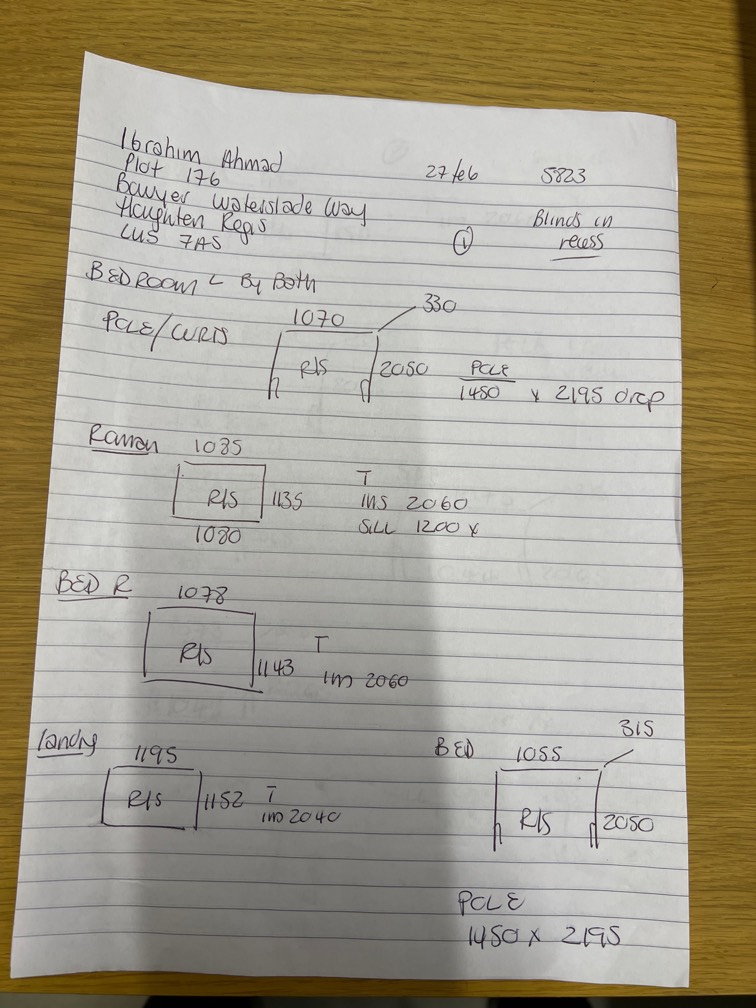 Ibrahim Ahmad
27 feb 5823
Plot 176
Bawyer Waterslade Way
Haughten Regis
LU5 7AS
①
Blinds in
recess
BEDROOM L By Both
POLE/CURTS
1070
330
R/S
2050
POLE
1450 x 2195 drop
1085
R/S
1135
1080
T
INS 2060
SILL 1200 x
BED R
1078
R/S
1143
T
Ins 2060
landg
1195
R/S
1152
T
Ins 2040
BED
1055
315
R/S
2050
POLE
1450 x 2195